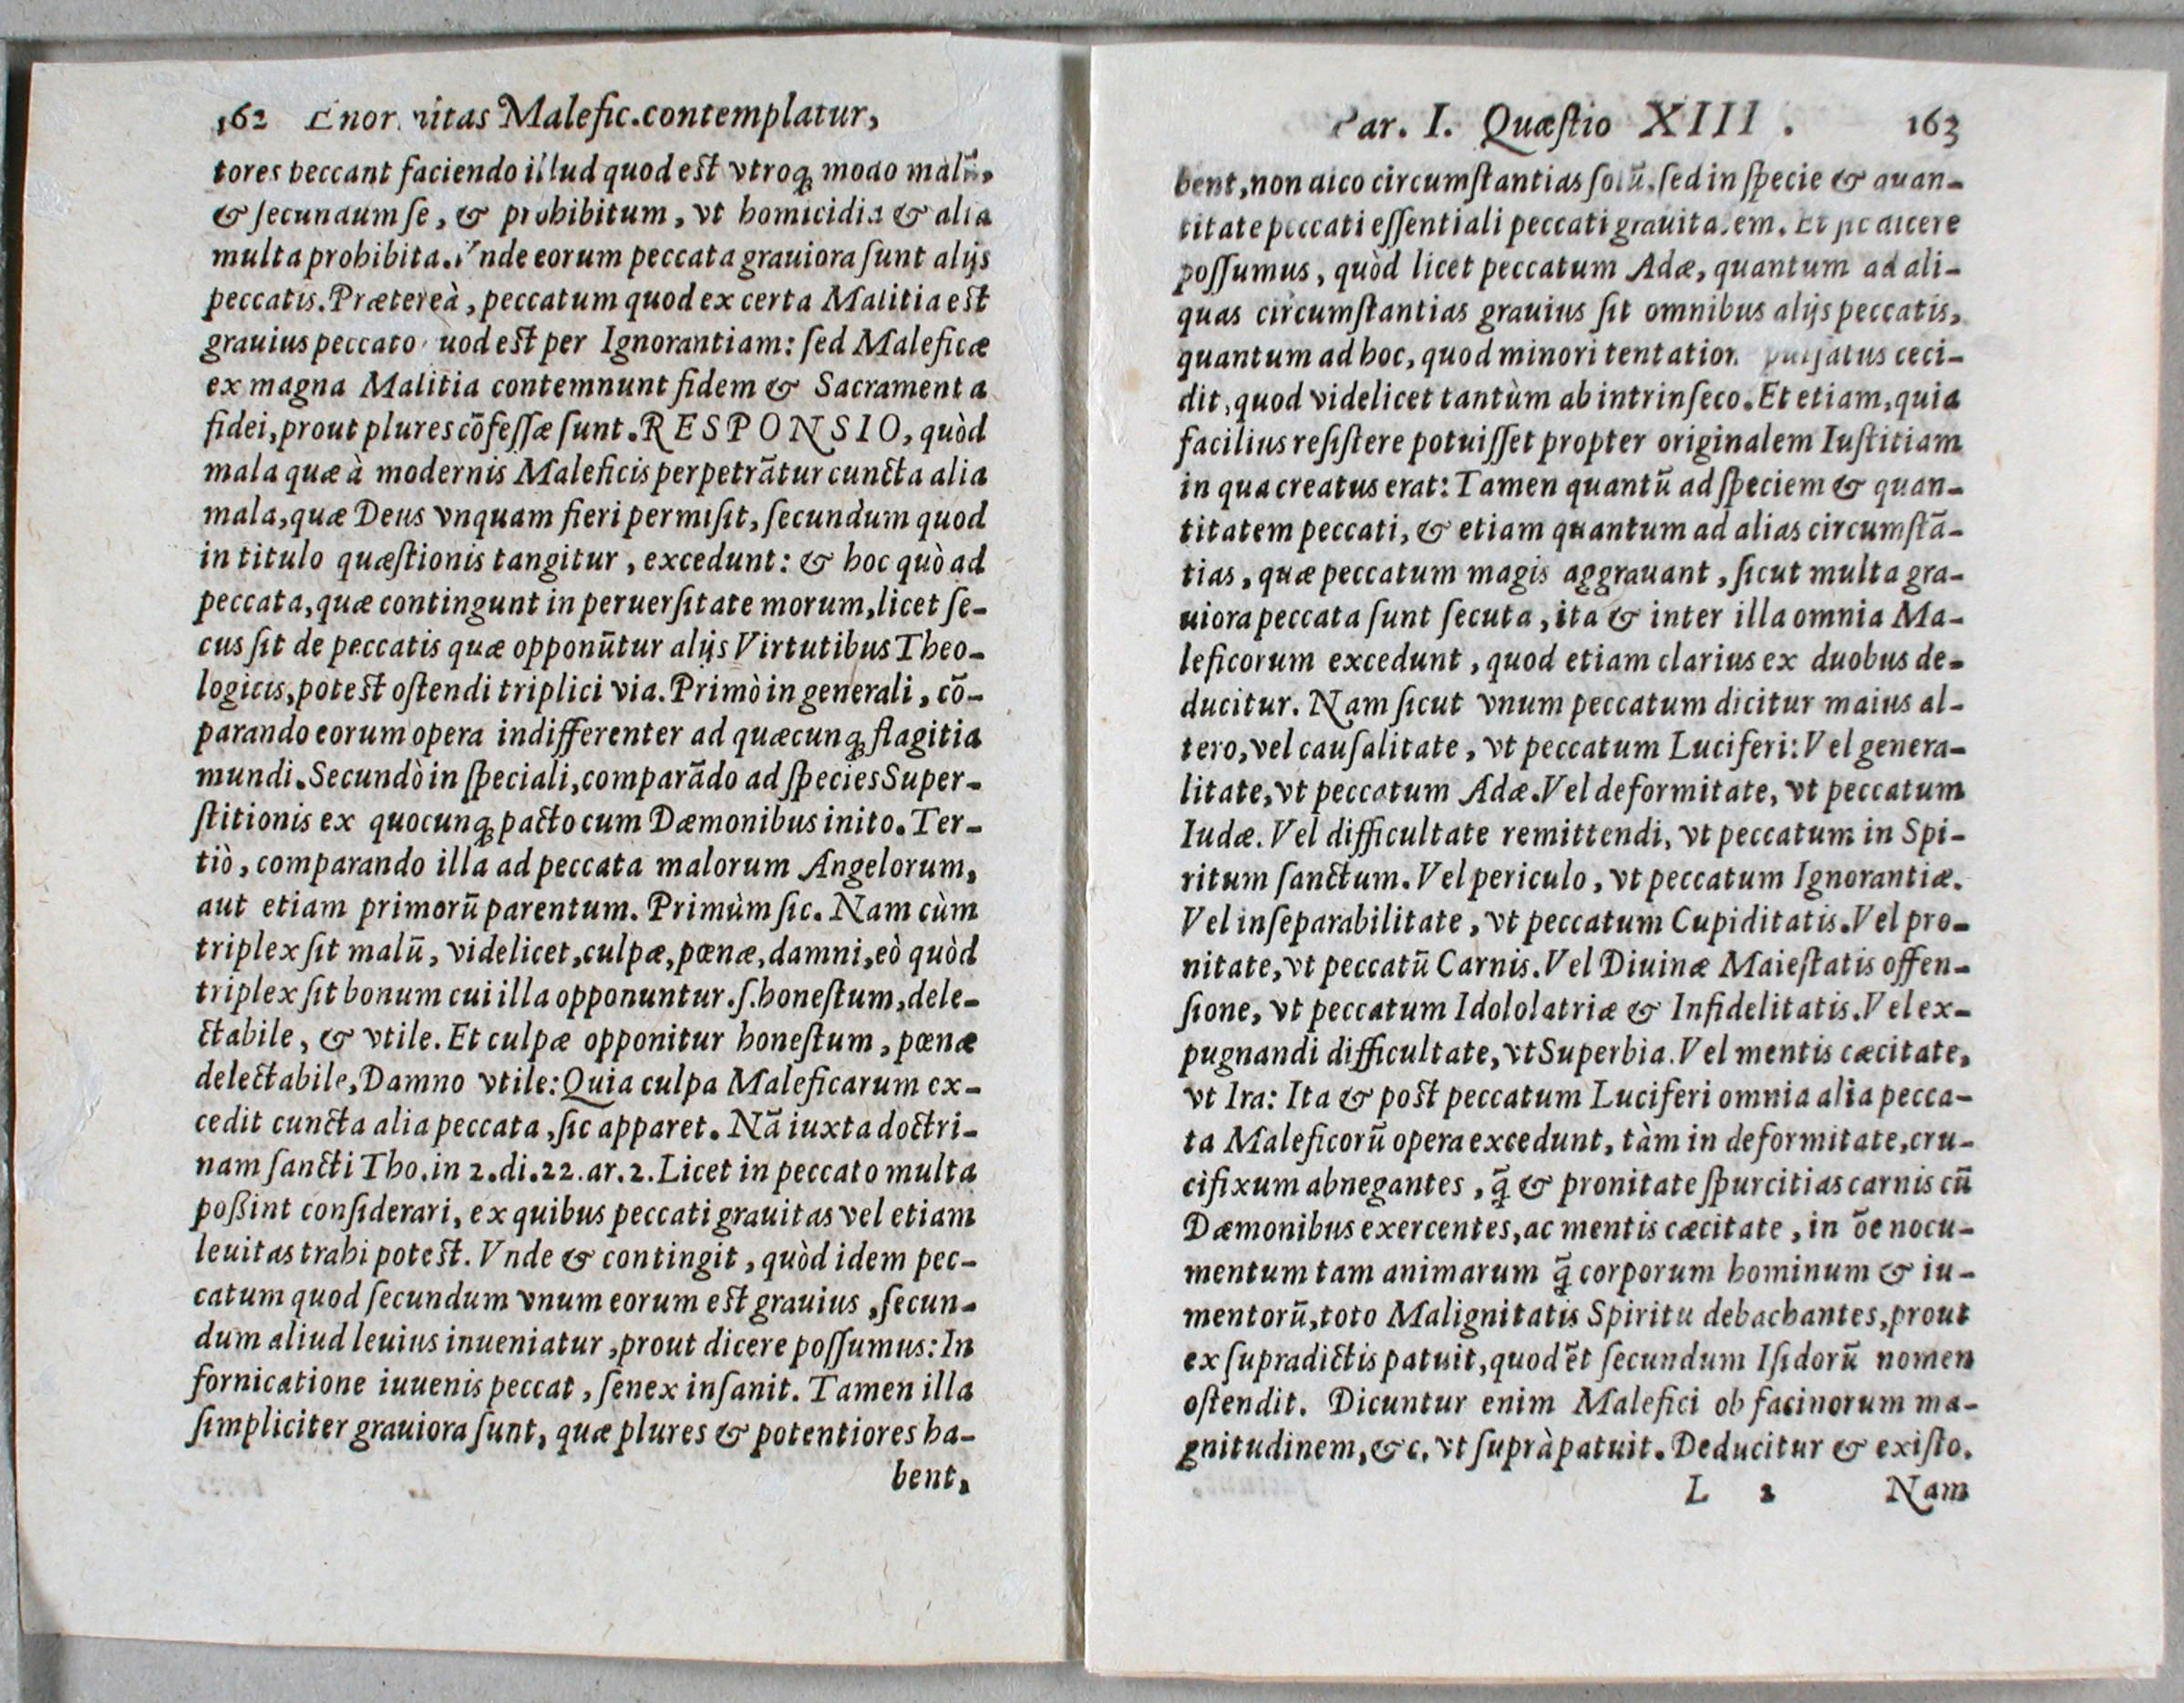 162 Enormitas Malefic.contemplatur,
tores peccant faciendo illud quod eſt vtroq; modo malũ,
& ſecundum ſe, & prohibitum, vt homicidia & alia
multa prohibita. Vnde eorum peccata grauiora ſunt alijs
peccatis. Prætereà, peccatum quod ex certa Malitia eſt
grauius peccato quod eſt per Ignorantiam: ſed Maleficæ
ex magna Malitia contemnunt fidem & Sacramenta
fidei, prout plures cõfeſſæ ſunt. RESPONSIO, quòd
mala quæ à modernis Maleficis perpetrãtur cuncta alia
mala, quæ Deus vnquam fieri permiſit, ſecundum quod
in titulo quæſtionis tangitur, excedunt: & hoc quò ad
peccata, quæ contingunt in peruerſitate morum, licet ſe-
cus ſit de peccatis quæ opponũtur alijs Virtutibus Theo-
logicis, poteſt oſtendi triplici via. Primò in generali, cõ-
parando eorum opera indifferenter ad quæcunq; flagitia
mundi. Secundò in ſpeciali, comparãdo ad ſpecies Super-
ſtitionis ex quocunq; pacto cum Dæmonibus inito. Ter-
tiò, comparando illa ad peccata malorum Angelorum,
aut etiam primorũ parentum. Primùm ſic. Nam cùm
triplex ſit malũ, videlicet, culpæ, pœnæ, damni, eò quòd
triplex ſit bonum cui illa opponuntur. ſ. honeſtum, dele-
ctabile, & vtile. Et culpæ opponitur honeſtum, pœnæ
delectabile, Damno vtile: Quia culpa Maleficarum ex-
cedit cuncta alia peccata, ſic apparet. Nã iuxta doctri-
nam ſancti Tho. in 2. di. 22. ar. 2. Licet in peccato multa
poßint conſiderari, ex quibus peccati grauitas vel etiam
leuitas trahi poteſt. Vnde & contingit, quòd idem pec-
catum quod ſecundum vnum eorum eſt grauius, ſecun-
dum aliud leuius inueniatur, prout dicere poſſumus: In
fornicatione iuuenis peccat, ſenex inſanit. Tamen illa
ſimpliciter grauiora ſunt, quæ plures & potentiores ha-
bent,
Par. I. Quæſtio XIII. 163
bent, non dico circumſtantias ſolũ, ſed in ſpecie & quan-
titate peccati eſſentiali peccati grauitatem. Et ſic dicere
poſſumus, quòd licet peccatum Adæ, quantum ad ali-
quas circumſtantias grauius ſit omnibus alijs peccatis,
quantum ad hoc, quod minori tentatione pulſatus ceci-
dit, quod videlicet tantùm ab intrinſeco. Et etiam, quia
facilius reſiſtere potuiſſet propter originalem Iuſtitiam
in qua creatus erat: Tamen quantũ ad ſpeciem & quan-
titatem peccati, & etiam quantum ad alias circumſtã-
tias, quæ peccatum magis aggrauant, ſicut multa gra-
uiora peccata ſunt ſecuta, ita & inter illa omnia Ma-
leficorum excedunt, quod etiam clarius ex duobus de-
ducitur. Nam ſicut vnum peccatum dicitur maius al-
tero, vel cauſalitate, vt peccatum Luciferi: Vel genera-
litate, vt peccatum Adæ. Vel deformitate, vt peccatum
Iudæ. Vel difficultate remittendi, vt peccatum in Spi-
ritum ſanctum. Vel periculo, vt peccatum Ignorantiæ.
Vel inſeparabilitate, vt peccatum Cupiditatis. Vel pro-
nitate, vt peccatũ Carnis. Vel Diuinæ Maieſtatis offen-
ſione, vt peccatum Idololatriæ & Infidelitatis. Vel ex-
pugnandi difficultate, vt Superbia. Vel mentis cæcitate,
vt Ira: Ita & poſt peccatum Luciferi omnia alia pecca-
ta Maleficorũ opera excedunt, tàm in deformitate, cru-
cifixum abnegantes, q̃ & pronitate ſpurcitias carnis cũ
Dæmonibus exercentes, ac mentis cæcitate, in õe nocu-
mentum tam animarum q̃ corporum hominum & iu-
mentorũ, toto Malignitatis Spiritu debachantes, prout
ex ſupradictis patuit, quod ẽt ſecundum Iſidorũ nomen
oſtendit. Dicuntur enim Malefici ob facinorum ma-
gnitudinem, &c. vt ſuprà patuit. Deducitur & ex iſto.
L 2 Nam